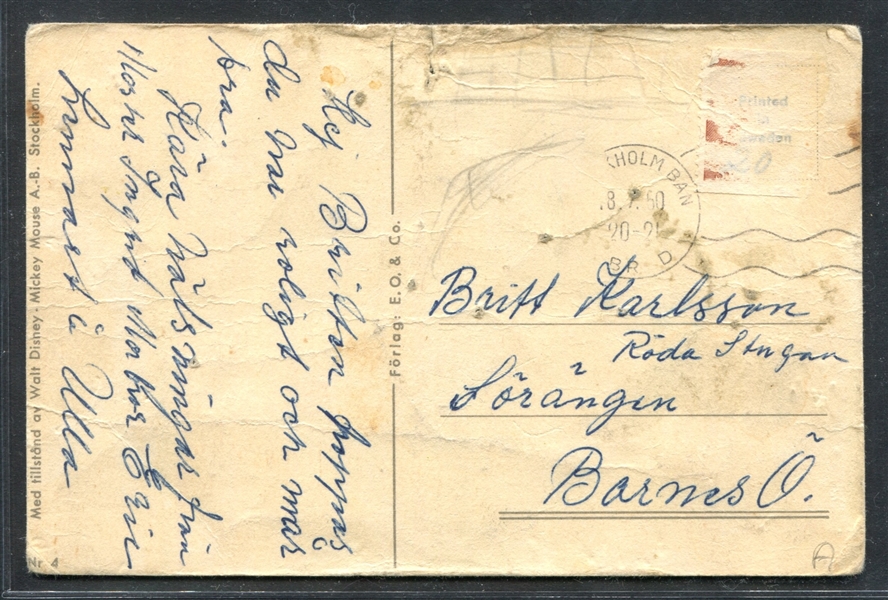 Hej Britten hoppas
du har roligt och mår
bra.
Kära hälsningar från
Ingrid Morbror Eric
Lennart å Ulla
Med tillstånd av Walt Disney - Mickey Mouse A.-B. Stockholm.
Nr 4
Förlag: E. O. & Co.
Printed
in
Sweden
20
KHOLM BAN
8.7.50
20-21
BR D
Britt Karlsson
Röda Stugan
Sörängen
Barnes Ö.
A